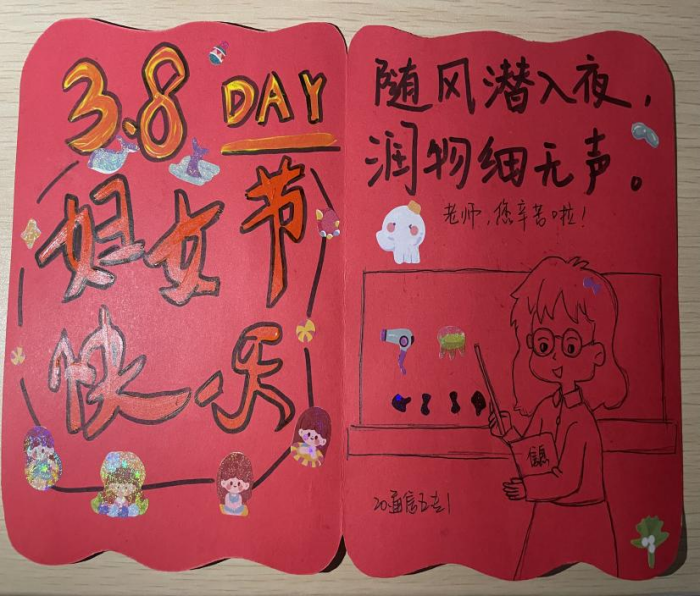 3.8 DAY
妇女节
快乐
随风潜入夜，
润物细无声。
老师，您辛苦啦！